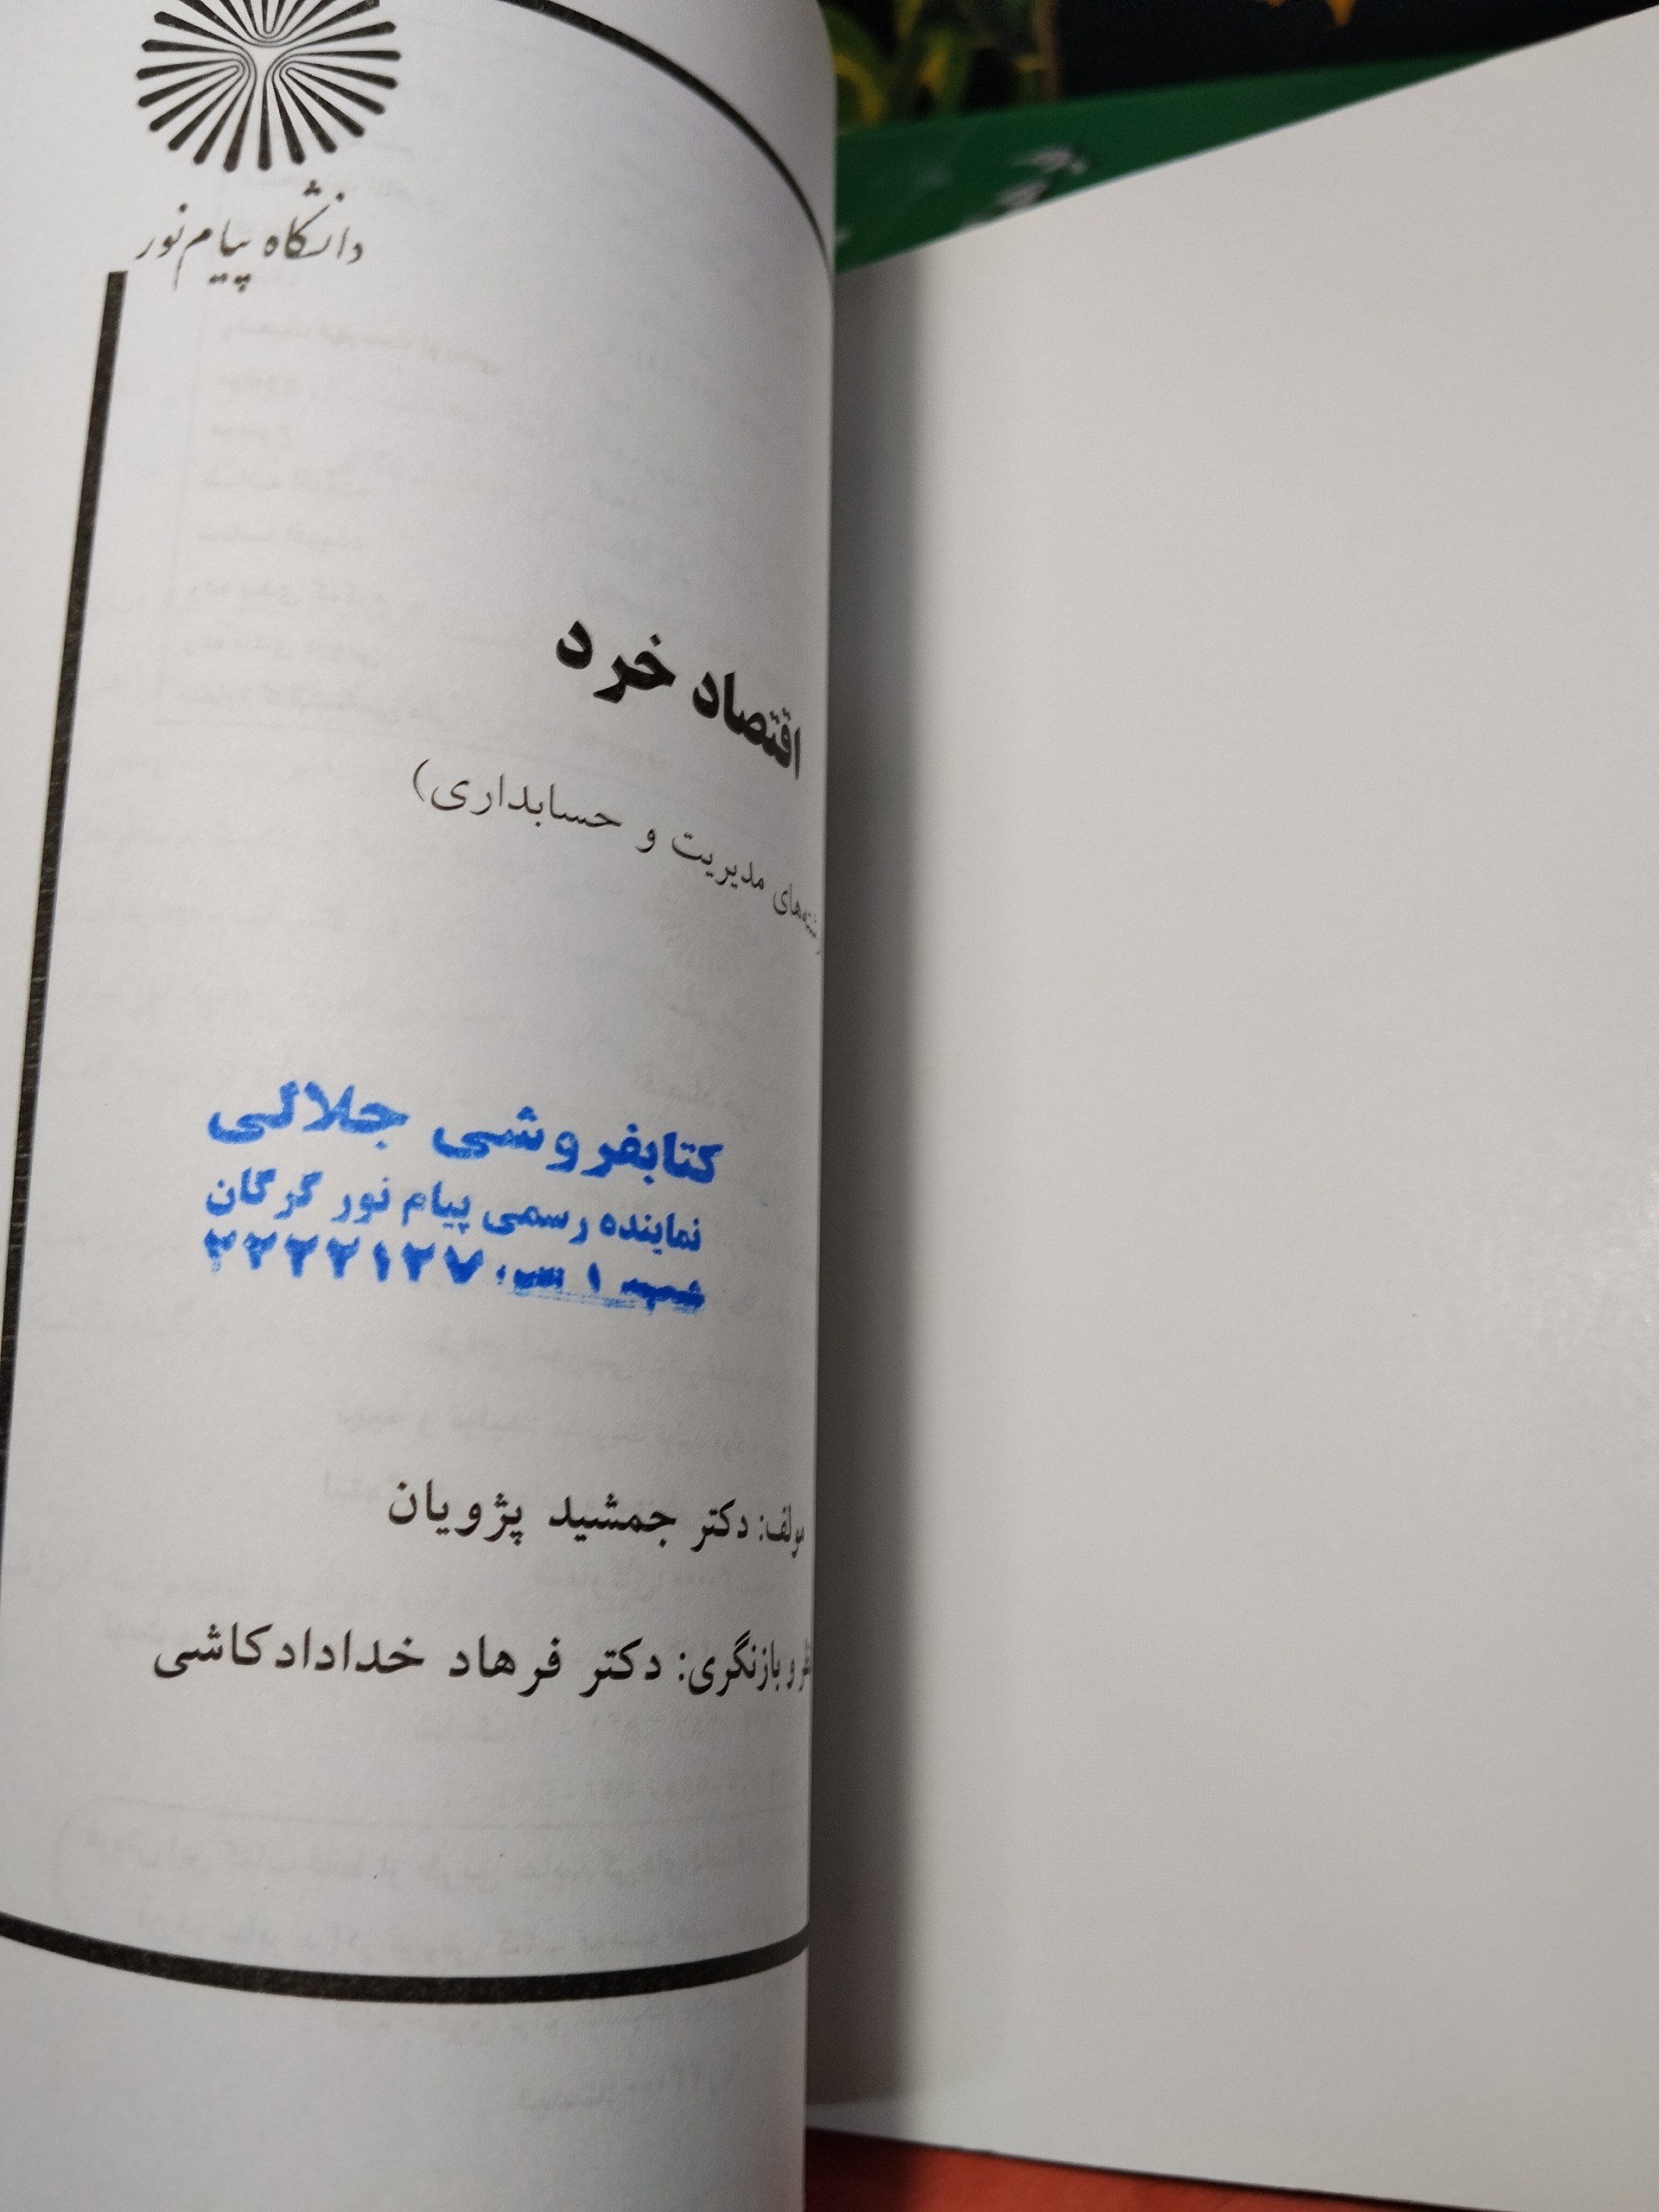 دانشگاه پیام نور
اقتصاد خرد
مدیریت و حسابداری)
کتابفروشی جلالی
نماینده رسمی پیام نور گرگان
۲۲۲۲۱۲۷
مولف: دکتر جمشید پژویان
و بازنگری: دکتر فرهاد خدادادکاشی